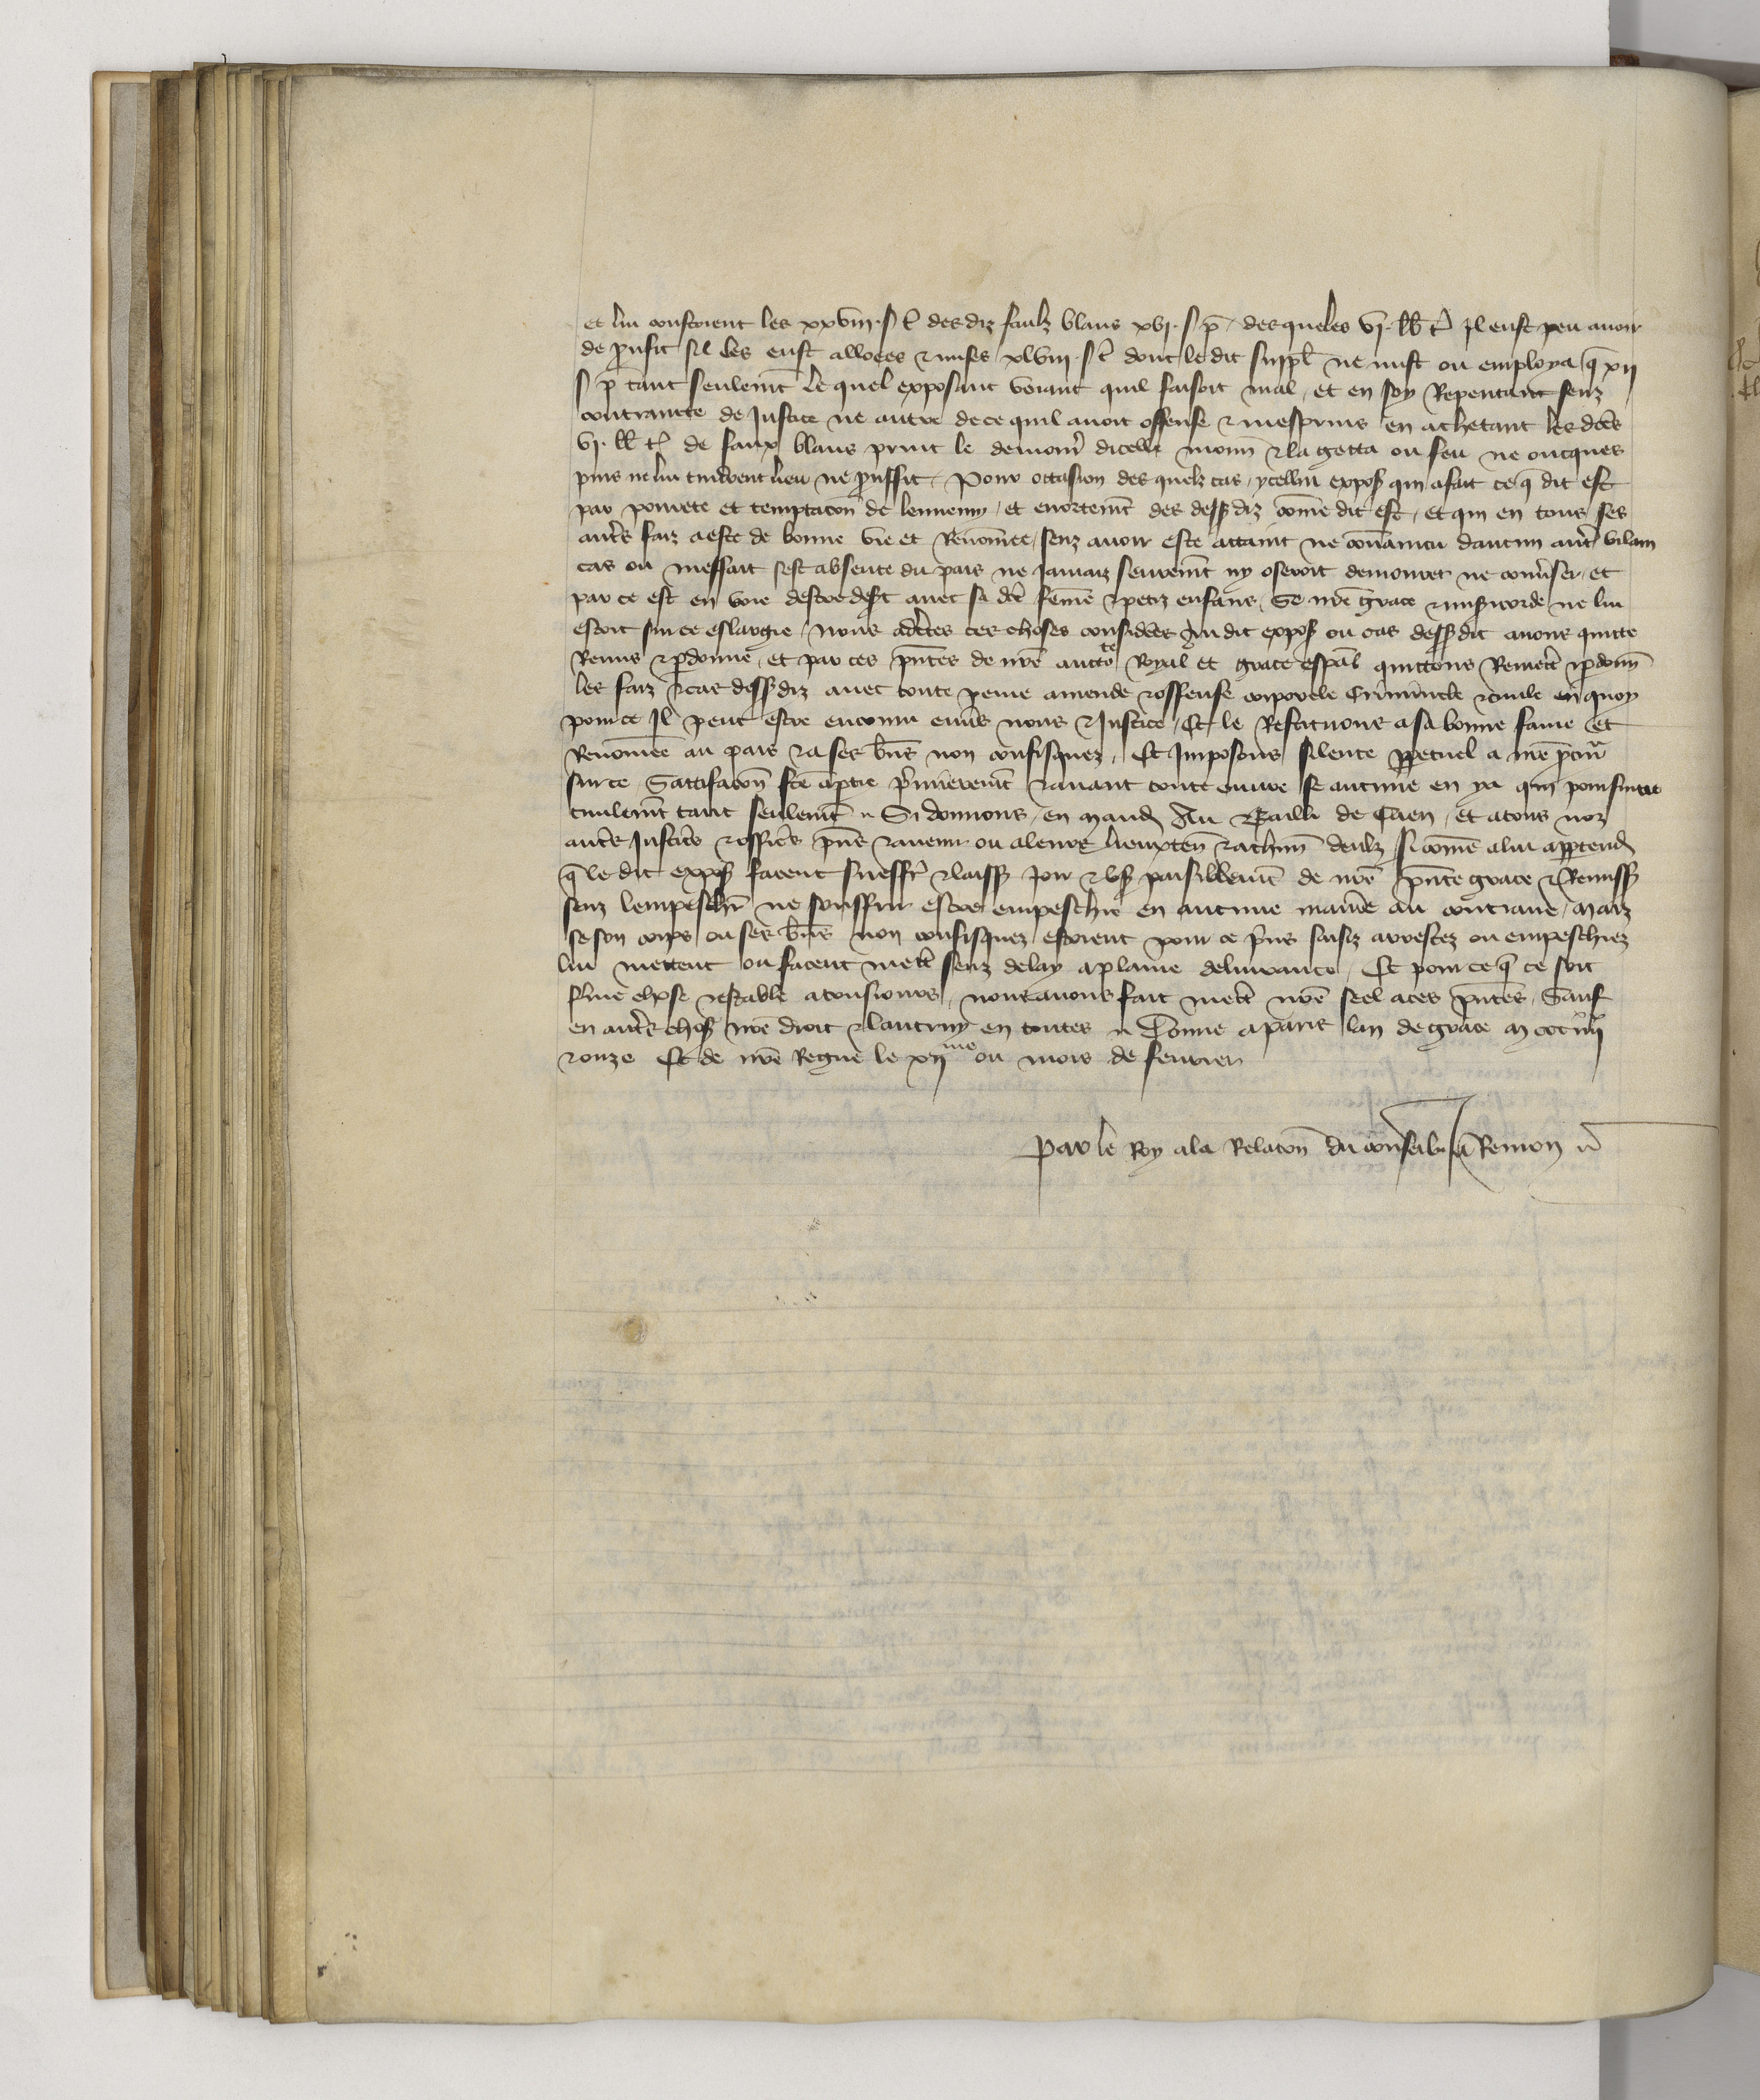 et lui coustoient les xxviii. s t̄ des diz faulz blans xvi. s p̄. des queles vi. ll̄ t̄ Il eust peu avoir
de proufit sil les eust alloees & mises xlviii. s t̄ dont le dit suppl̄ ne mist ou emploia q̄ xii
s p̄ tant seulemt̄ Le quel exposant veiant quil faisoit mal, et en soy Repentant senz
contraincte de Justice ne autre de ce quil avoit offense & mesprins en achetant les dc̄es
vi. ll̄ t̄ de faux blans prinst le demour̄ dicelle monn̄ & la getta ou feu ne oncques
puis ne lui tindrent lieu ne prouffit. Pour occasion des quelz cas, ycellui expos̄ qui a fait ce q̄ dit est
par povrete et temptacōn de lennemy, et enortemt̄ des dess diz com̄e dit est, et qui en tous ses
autr̄s faiz a este de bonne vie et Renom̄ee, senz avoir este attaint ne convaincu daucun autr̄ vilain
cas ou meffait sest absente du pais ne Jamaiz seurem̄t ny oseroit demourer ne conv̄ser, et
par ce est en voie destre desert avec sa dc̄e fem̄e & petiz enfans, Se nr̄e grace & misericorde ne lui
estoit sur ce eslargie, Nous adc̄ertes ces choses considerees Au dit expos̄ ou cas dess dit avons quitte
Remis & p̄donne, et par ces p̄ntes de nr̄e auctote Royal et grace esp̄al quittons Remect̄ & p̄donn̄
les faiz & cas dess diz avec toute peine amende & offense corporele Criminele & civile en quoy
pour ce Il peut estre encouru envers nous & Justice, Et le Restituons a sa bonne fame et
Renom̄ee au pais & a ses b̄ns non confisquez, Et Imposons silence ppetuel a nr̄e procur̄
sur ce Sattifacōn fc̄e a ptie p̄mierem̄t & avant toute euvre se aucune en ya qui poursuivre
civilem̄t tant seulem̄t. Si donnons en mand̄ Au Bailli de Caen, et a tous noz
autr̄s Justic̄s & offic̄rs p̄ns & avenir ou a leurs lieuxten̄ & a chun̄ deulz si com̄e a lui appt̄end̄
q̄ le dit expos̄ facent sueffr̄ & laiss̄ Jouir & us̄ paisiblem̄t de nr̄e p̄nte grace & Remiss̄
senz lempeschr̄ ne souffrir estre empeschie en aucune maniē au contraire, Maiz
se son corps ou ses b̄ns non confisquez estoient pour ce p̄ns saisiz arrestez ou empeschiez
lui mettent ou facent mectr̄ senz delay a plaine delivrance, Et pour ce q̄ ce soit
ferme chose & estable a tousjours, nous avons fait mectr̄ nr̄e seel a ces p̄ntes, Sauf
en autr̄s chos̄ nr̄e droit & lautruy en toutes. Donne a paris lan de grace M CCC iiii
& onze Et de nr̄e Regne le xiime ou mois de fevrier
Par le Roy a la Relacōn du conseil. Ja Remon